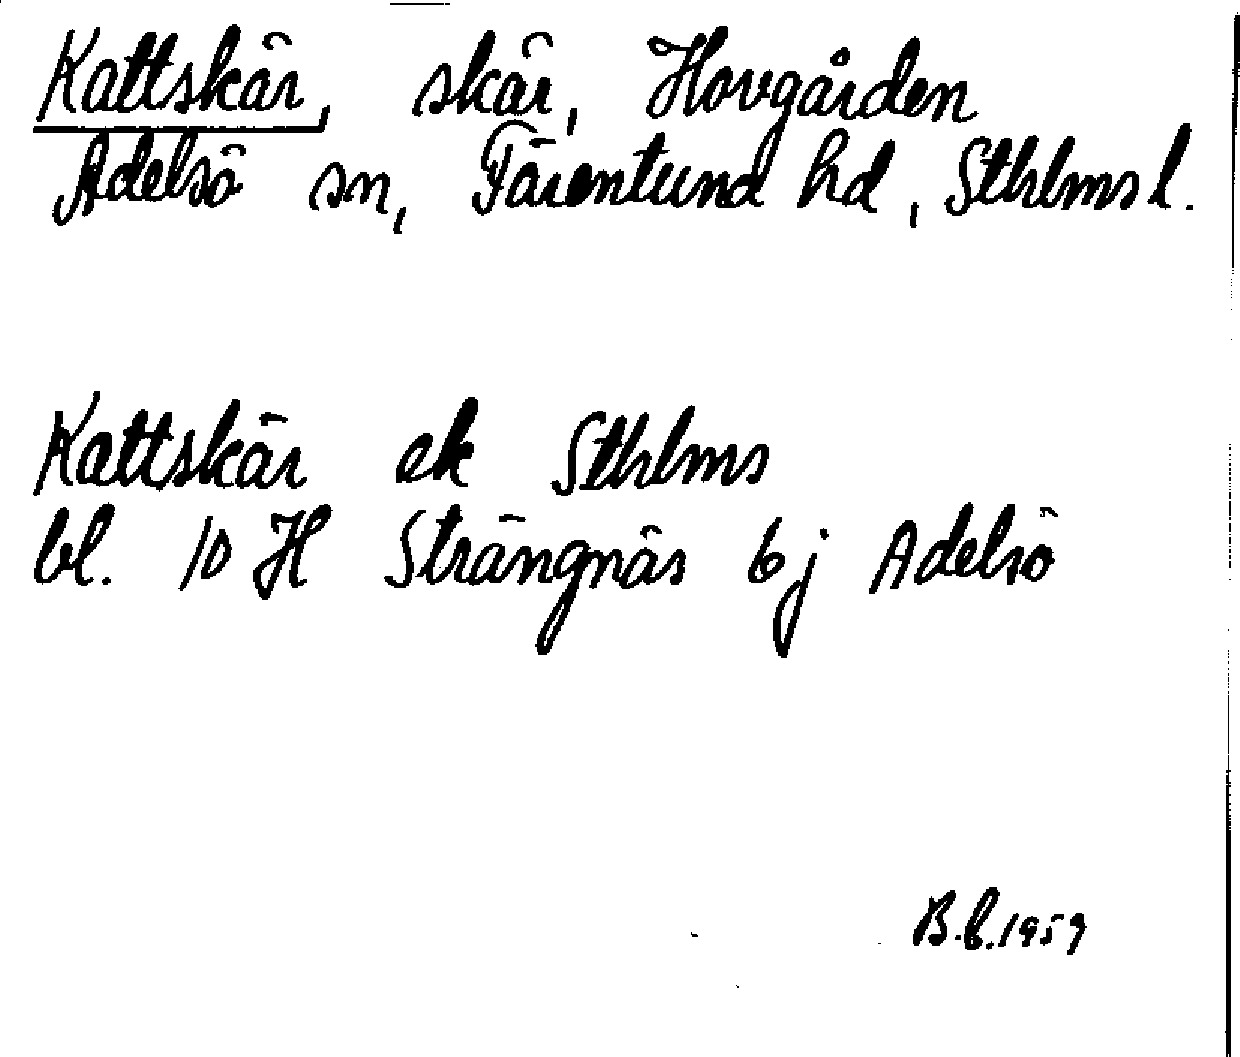 Kattskär, skär, Hovgården
Adelsö sn, Färentund hd, Sthlms l.
Kattskär ek Sthlms
bl. 10 H Strängnäs 6 j Adelsö
B.b. 1959